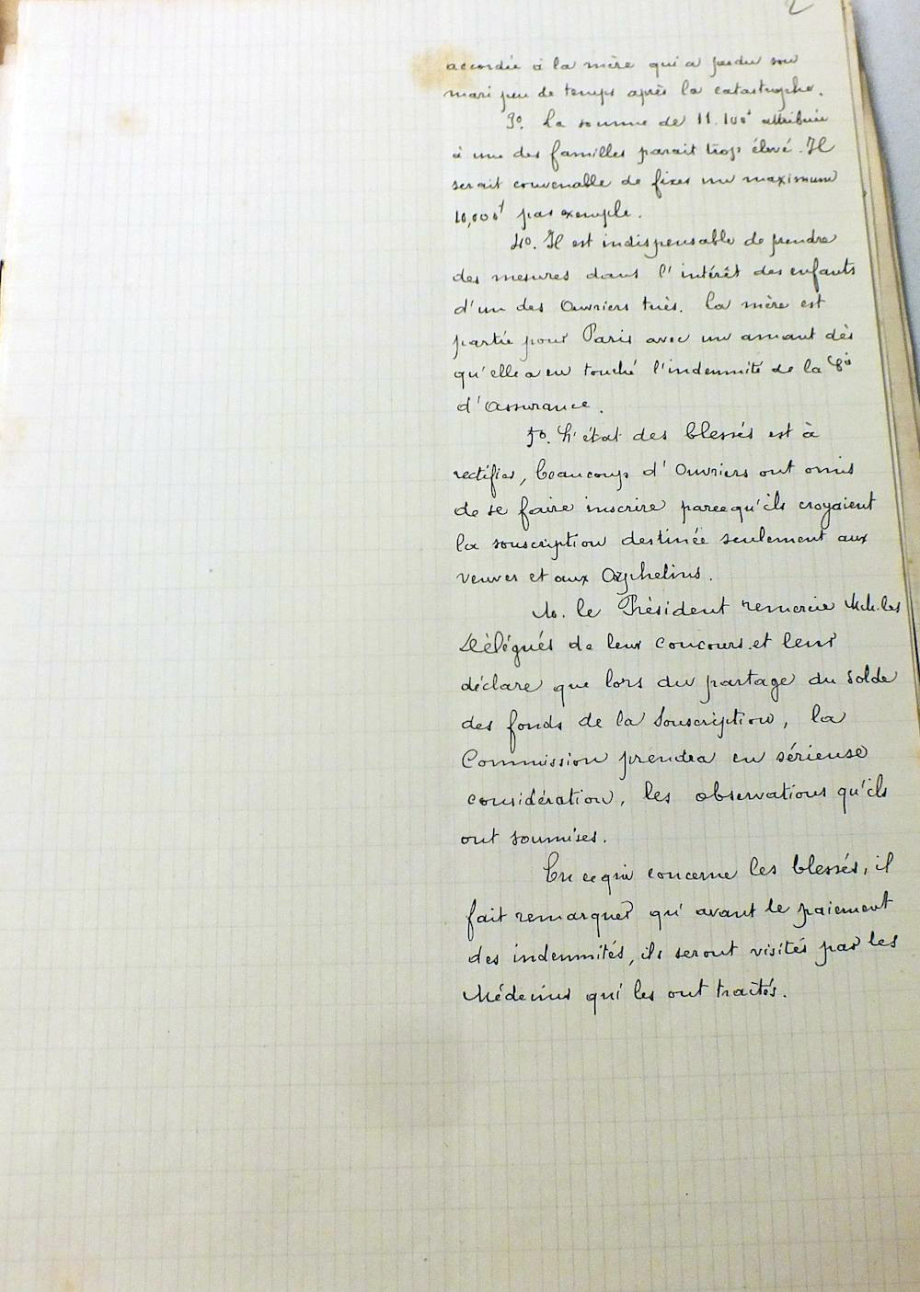 2
accordée à la mère qui a perdu son
mari peu de temps après la catastrophe.
3º. La somme de 11.100f attribuée
à une des familles parait trop élevé. Il
serait convenable de fixer un maximum
10,000f par exemple.
4º. Il est indispensable de prendre
des mesures dans l'intérêt des enfants
d'un des Ouvriers tués. La mère est
partie pour Paris avec un amant dès
qu'elle a eu touché l'indemnité de la Cie
d'Assurance.
5º. L'état des blessés est à
rectifier, beaucoup d'Ouvriers ont omis
de se faire inscrire parcequ'ils croyaient
la souscription destinée seulement aux
veuves et aux Orphelins.
M. le Président remercie M.M. les
Délégués de leur concours et leur
déclare que lors du partage du solde
des fonds de la Souscription, la
Commission prendra en sérieuse
considération, les observations qu'ils
ont soumises.
En ce qui concerne les blessés, il
fait remarquer qu'avant le paiement
des indemnités, ils seront visités par les
Médecins qui les ont traités.